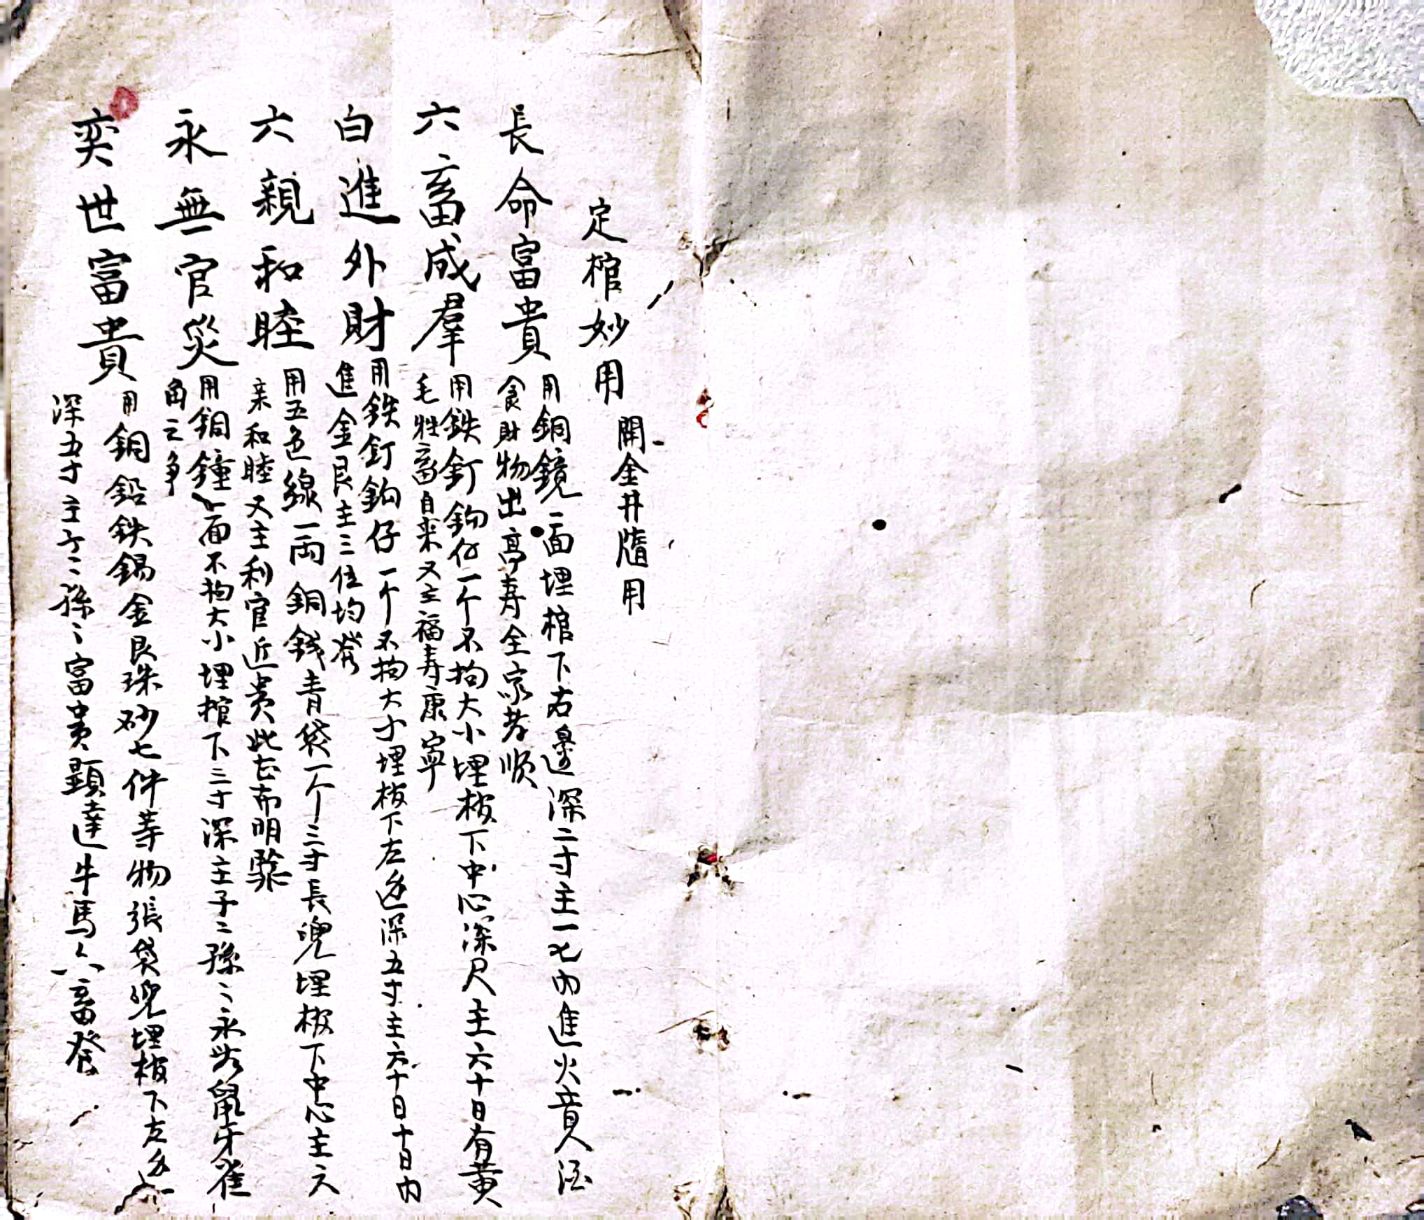 定棺妙用 開金井牆用
長命富貴
用銅鏡一面埋棺下右邊深二寸主一七內進火音人活
食財物出高寿全家孝順
六畜成羣
用鉄釘鈎仔一个不拘大小埋板下中心深尺主六十日有黃
毛牲畜自来又主福寿康寧
白進外財
用鉄釘鈎仔一个不拘大寸埋板下左边深五寸主六十日十日內
進金艮主三位均發
六親和睦
用五色線一両銅銭青袋一个三寸長兜埋板下中心主六
亲和睦又主利官近貴此甚有明驗
永無官災
用銅鐘一面不拘大小埋棺下三寸深主子〻孫〻永無鼠牙雀
角之争
奕世富貴
用銅鉛鉄錫金艮珠砂七件等物張袋兜埋板下左边
深五寸主子〻孫〻富貴顕達牛馬六畜發